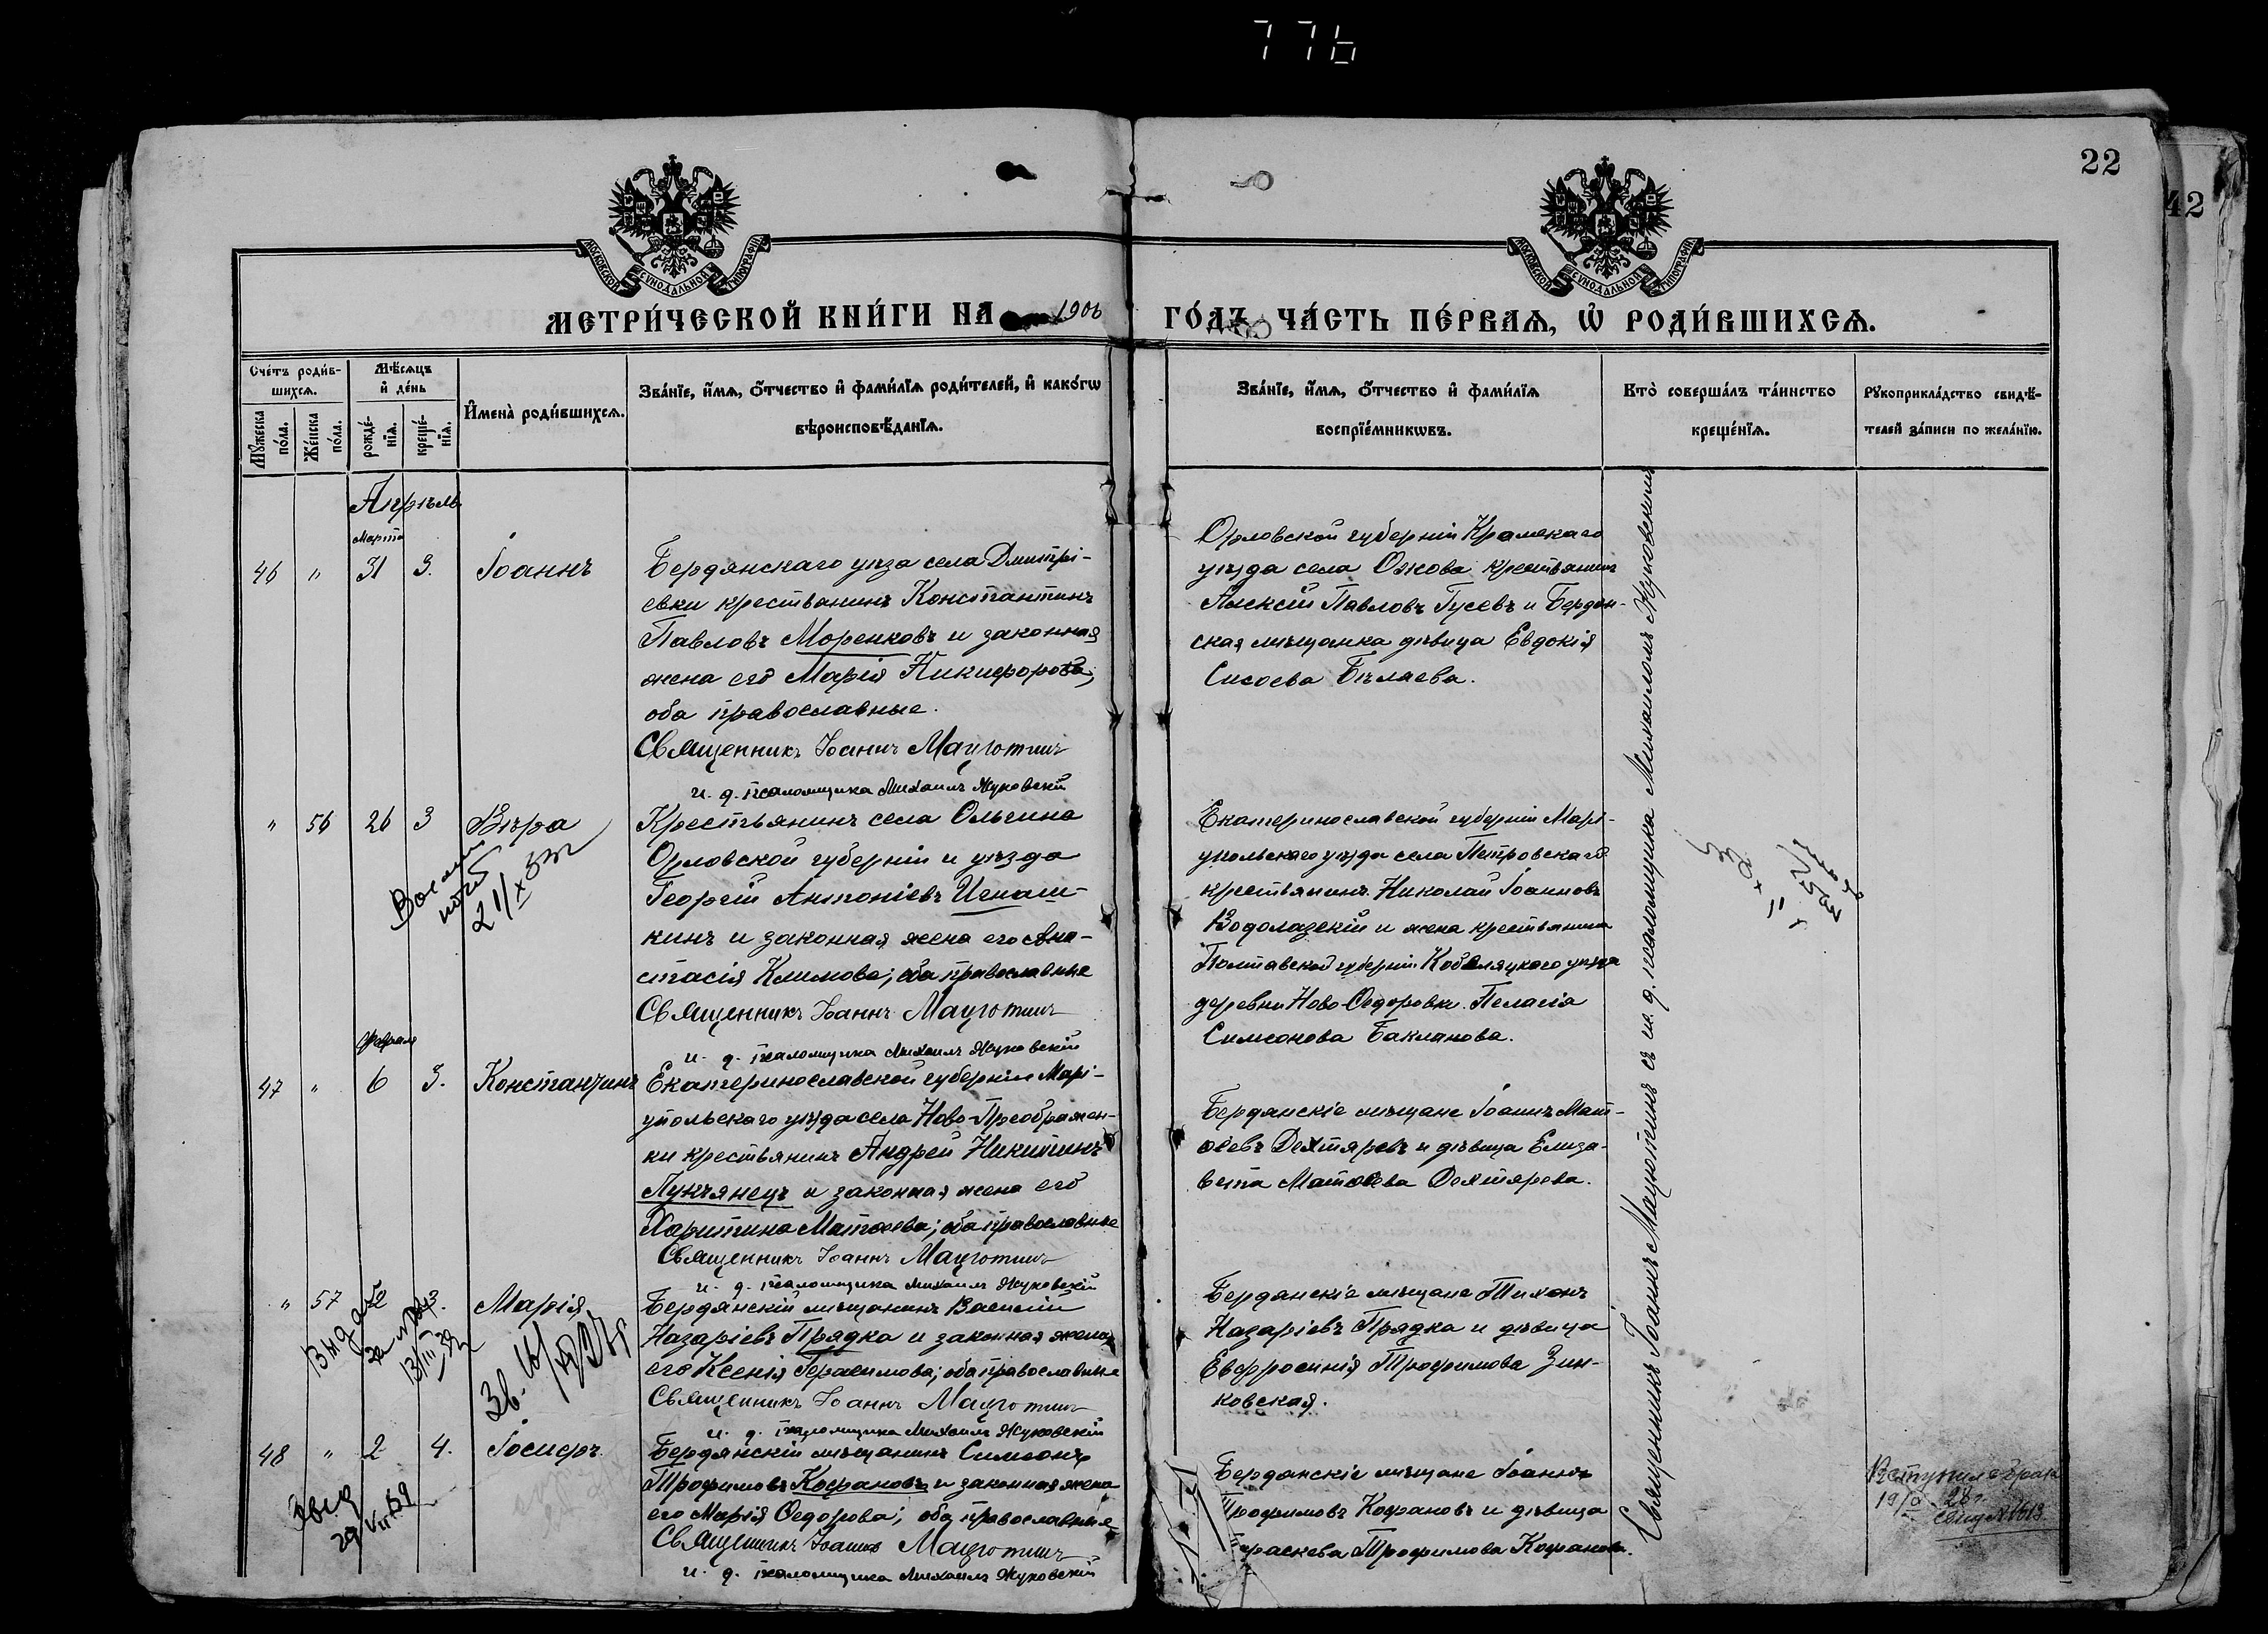 776
22
42
МОСКОВСКОЙ СѴНОДАЛЬНОЙ ТИПОГРАФІИ
МОСКОВСКОЙ СѴНОДАЛЬНОЙ ТИПОГРАФІИ
МЕТРИ́ЧЕСКОЙ КНИ́ГИ НА 1906 ГО́ДЪ ЧА́СТЬ ПЕ́РВАѦ, Ѡ҆ РОДИ́ВШИХСѦ.
Сче́тъ роди́в-
шихсѧ.
Мꙋ́жеска по́ла.
Же́нска по́ла.
Мѣ́сѧцъ
и҆ де́нь
рожде́-
нїѧ.
креще́-
нїѧ.
И҆мена̀ роди́вшихсѧ.
Зва́нїе, и҆́мѧ, ѻ҆́тчество и҆ фами́лїѧ роди́телей, и҆ како́гѡ
вѣроисповѣ́данїѧ.
Зва́нїе, и҆́мѧ, ѻ҆́тчество и҆ фами́лїѧ
воспрїе́мникѡвъ.
Кто̀ соверша́лъ та́инство
креще́нїѧ.
Рꙋкоприкла́дство свидѣ́-
телей за́писи по жела́нїю.
Апрѣль
Марта
46 " 31 3. Іоаннъ
Бердянскаго уѣзда села Дмитрі-
евки крестьянинъ Константинъ
Павловъ Моренковъ и законная
жена его Марія Никифорова;
оба православные.
Священникъ Іоаннъ Мацютинъ
и. д. псаломщика Михаилъ Жуковскій
Орловской губерніи Кромскаго
уѣзда села Ожова крестьянинъ
Алексій Павловъ Гусевъ и Бердян-
ская мѣщанка дѣвица Евдокія
Сисоева Бѣлаева.
" 56 26 3 Вѣра
Крестьянинъ села Ольгина
Орловской губерніи и уѣзда
Георгій Антоніевъ Игнаш-
кинъ и законная жена его Ана-
стасія Климова; оба православные
Священникъ Іоаннъ Мацютинъ
и. д. псаломщика Михаилъ Жуковскій
Екатеринославской губерніи Марі-
упольскаго уѣзда села Петровскаго
крестьянинъ Николай Іоанновъ
Водолазскій и жена крестьянина
Полтавской губерніи Кобеляцкаго уѣзда
деревни Ново-Ѳедоровки Пелагія
Симеонова Бакланова.
Февраля
47 " 6 3. Константинъ
Екатеринославской губерніи Марі-
упольскаго уѣзда села Ново-Преображен-
ки крестьянинъ Андрей Никитинъ
Лукьянецъ и законная жена его
Харитина Матѳеева; оба православные
Священникъ Іоаннъ Мацютинъ
и. д. псаломщика Михаилъ Жуковскій
Бердянскіе мѣщане Іоаннъ Мат-
ѳеевъ Дехтяревъ и дѣвица Елиза-
вета Матѳеева Дехтярева.
" 57 3. Марія
Бердянскій мѣщанинъ Василій
Назаріевъ Прядка и законная жена
его Ксенія Герасимова; оба православные
Священникъ Іоаннъ Мацютинъ
и. д. псаломщика Михаилъ Жуковскій
Бердянскіе мѣщане Тихонъ
Назаріевъ Прядка и дѣвица
Евфросинія Трофимова Зин-
ковская.
48 " 2 4. Іосифъ
Бердянскій мѣщанинъ Симеонъ
Трофимовъ Кофановъ и законная жена
его Марія Ѳедорова; оба православные
Священникъ Іоаннъ Мацютинъ
и. д. псаломщика Михаилъ Жуковскій
Бердянскіе мѣщане Іоаннъ
Трофимовъ Кофановъ и дѣвица
Параскева Трофимова Кофанова.
Священникъ Іоаннъ Мацютинъ съ и. д. псаломщика Михаиломъ Жуковскимъ